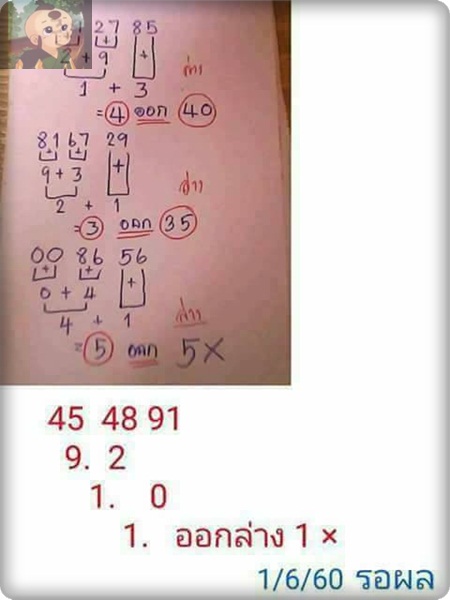 27 85
2 + 9 +
1 + 3 ล่าง
= 4 ออก 40
8167 29
+ + +
9 + 3
2 + 1 ล่าง
= 3 ออก 35
00 86 56
+ + +
0 + 4
4 + 1 ล่าง
= 5 ออก 5X
45 48 91
9. 2
1. 0
1. ออกล่าง 1 ×
1/6/60 รอผล